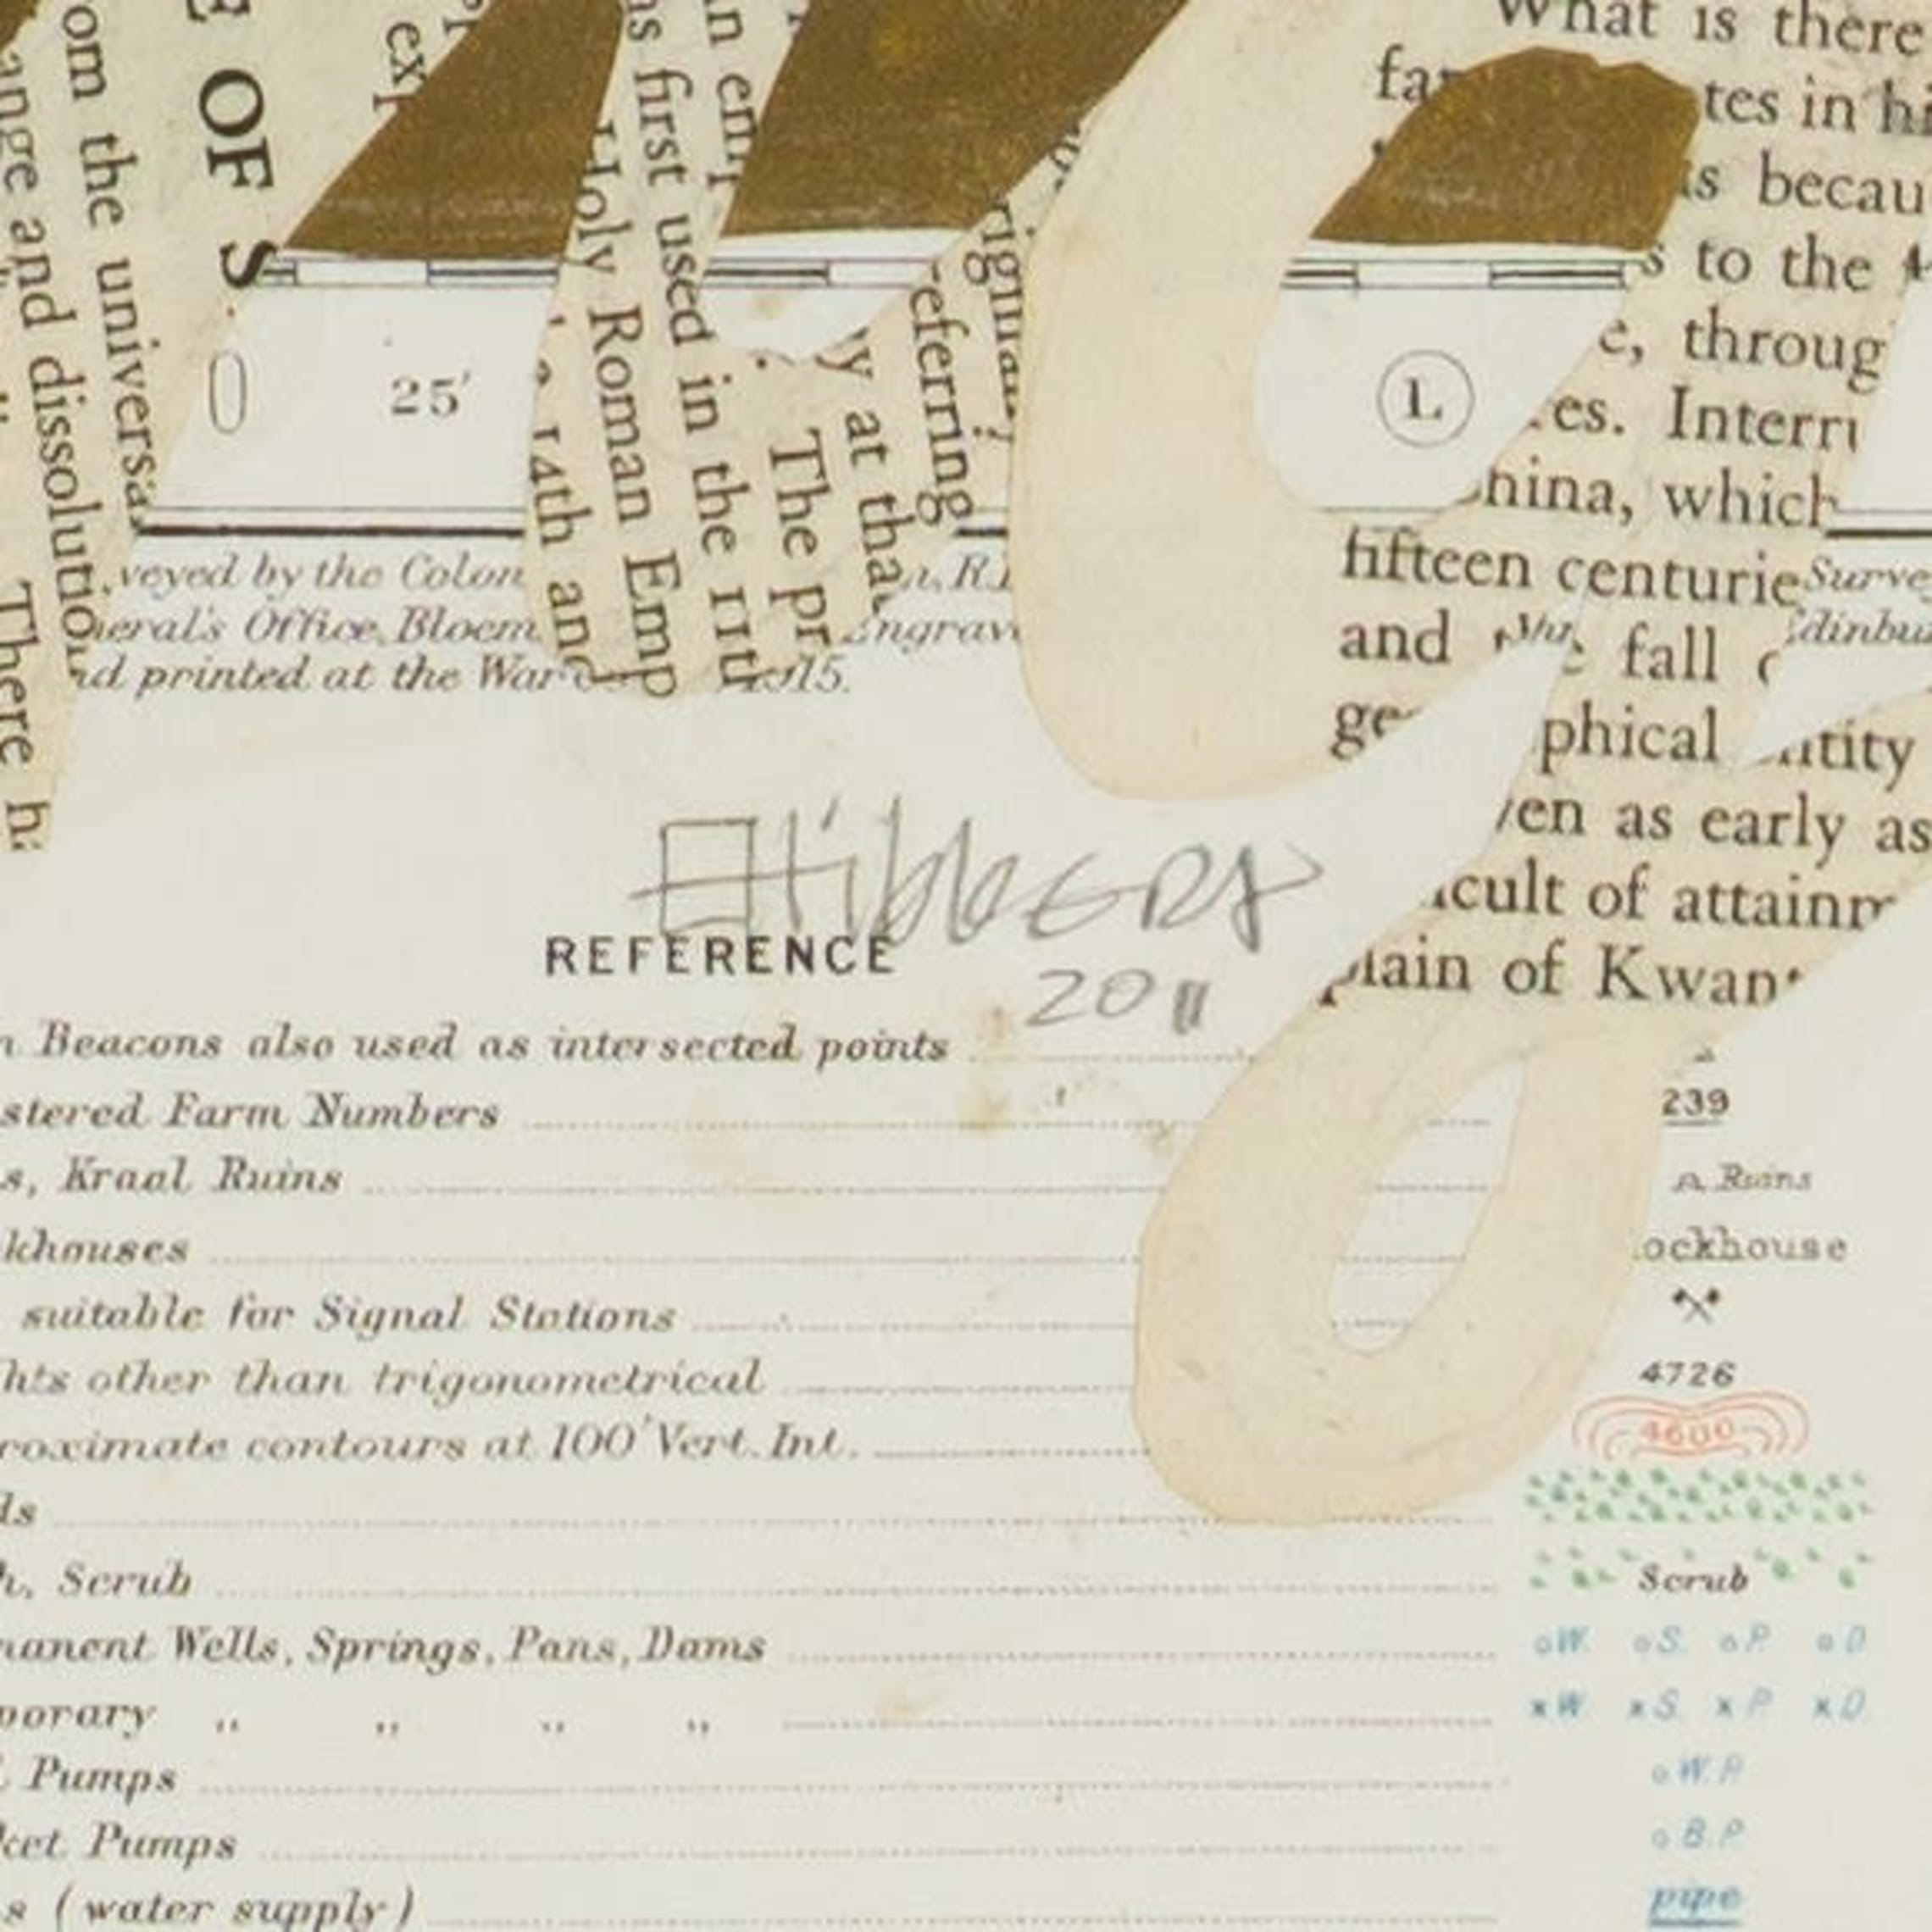 E OF S
om the universa
ange and dissolution
There ha
exp
Holy Roman Emp
14th and
as first used in the 11th
an emp
. The pr
y at tha
referring
What is there
fa tes in hi
is becau
s to the
e, throug
res. Interru
hina, which
fifteen centurie
and the fall
ge phical ntity
ven as early as
icult of attainm
plain of Kwan
25'
L
veyed by the Colon
neral's Office, Bloem Engrav
nd printed at the War 1915.
Surve
Edinbu
2011
REFERENCE
n Beacons also used as intersected points
stered Farm Numbers 239
s, Kraal Ruins Ruins
khouses ockhouse
suitable for Signal Stations
hts other than trigonometrical 4726
roximate contours at 100' Vert. Int. 4600
ds
h, Scrub Scrub
nanent Wells, Springs, Pans, Dams oW. oS. oP. oD
porary " " " " xW xS. xP xD
Pumps oW.P.
ket Pumps oB.P
s (water supply) pipe